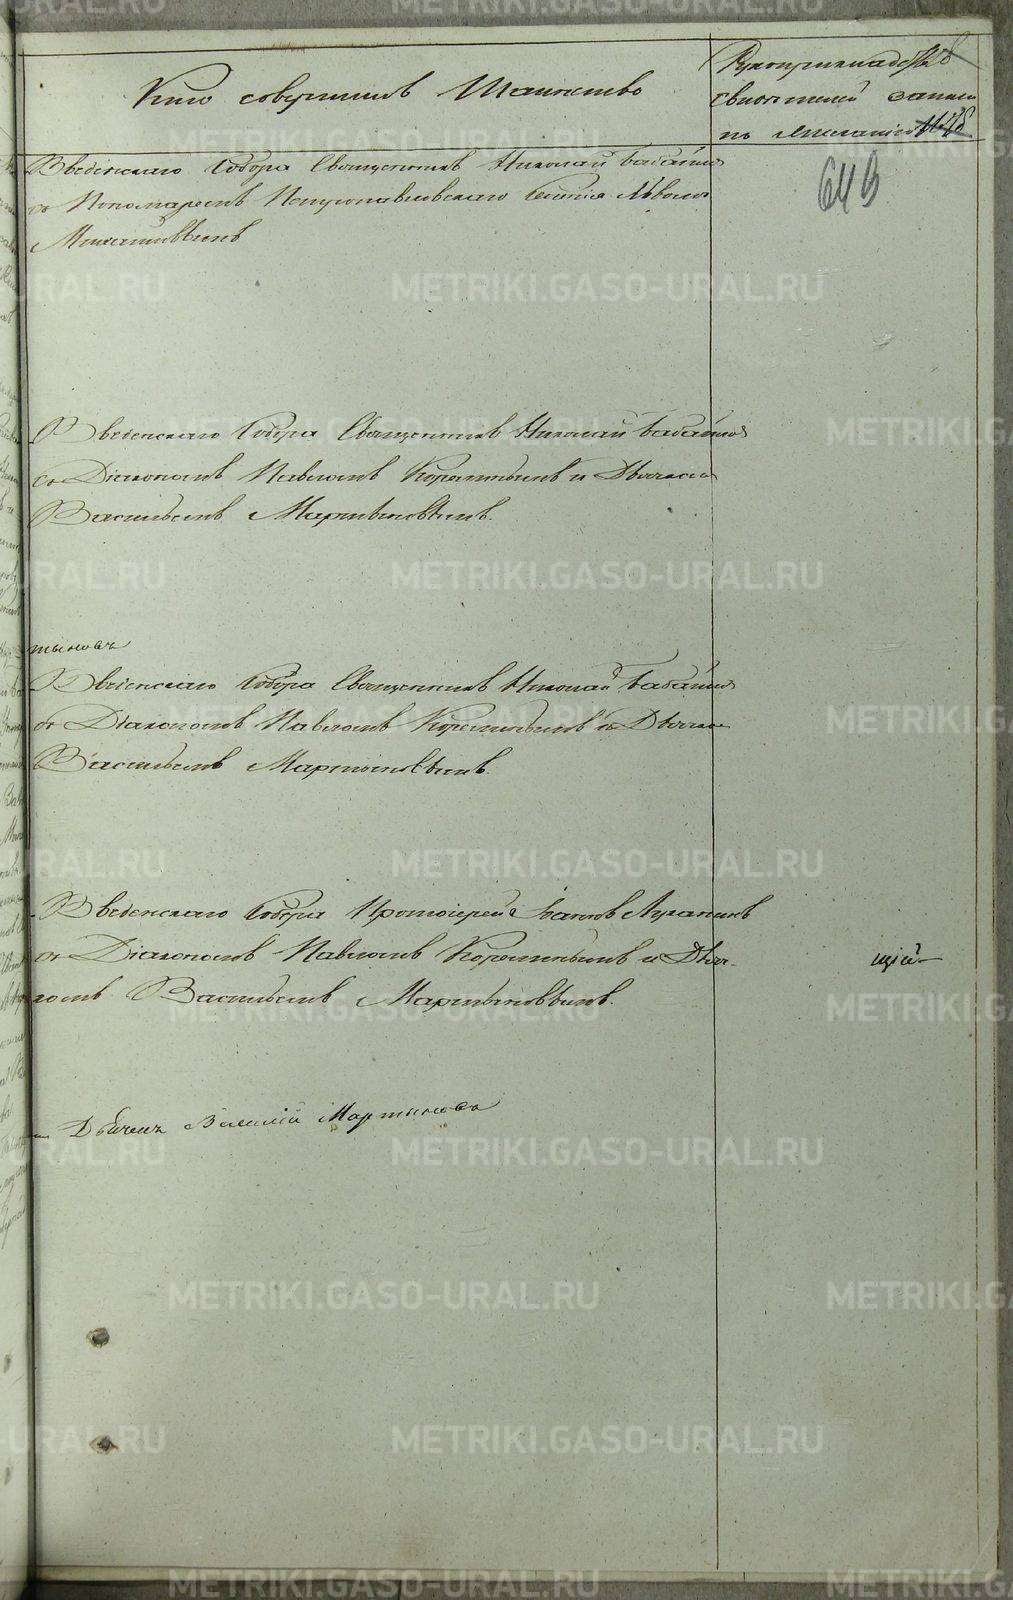 Кто совершилъ Таинство
Рукоприкладство
свидѣтелей записи
по желанію
Введенскаго Собора Священникъ Николай Бабайловъ
съ Пономаремъ Петропавловскаго
648
Введенскаго Собора Священникъ Николай Бабайловъ
съ Діакономъ Павломъ и Дьячкомъ
Васильемъ Мартыновымъ.
тыновъ
Введенскаго Собора Священникъ Николай Бабайловъ
съ Діакономъ Павломъ и Дьячкомъ
Васильемъ Мартыновымъ.
Введенскаго Собора Протоіерей Іоаннъ
съ Діакономъ Павломъ и Дьяч-
комъ Васильемъ Мартыновымъ.
щій
Дьячекъ Василій Мартыновъ
METRIKI.GASO-URAL.RU